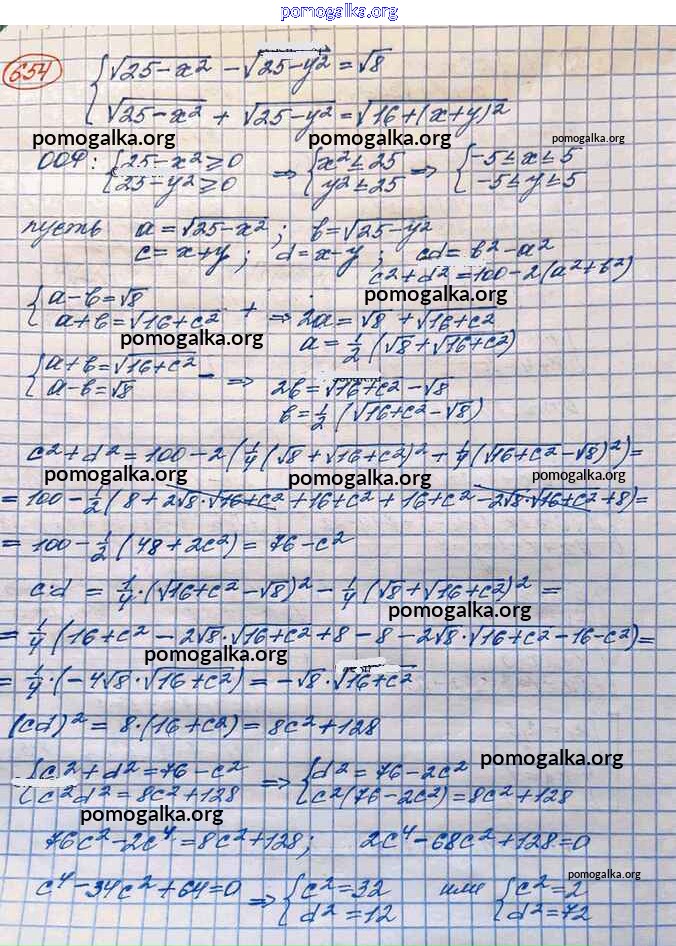 pomogalka.org
654 { √25-x² - √25-y² = √8
√25-x² + √25-y² = √16+(x+y)²
pomogalka.org pomogalka.org pomogalka.org
ООУ: { 25-x² ≥ 0 => { x² ≤ 25 => { -5 ≤ x ≤ 5
25-y² ≥ 0 y² ≤ 25 -5 ≤ y ≤ 5
пусть a = √25-x²; b = √25-y²
c = x+y; d = x-y; cd = b²-a²
c²+d² = 100-2(a²+b²)
pomogalka.org
{ a-b = √8
a+b = √16+c² + => 2a = √8 + √16+c²
pomogalka.org a = 1/2 (√8 + √16+c²)
{ a+b = √16+c²
a-b = √8 - => 2b = √16+c² - √8
b = 1/2 (√16+c² - √8)
c²+d² = 100-2(1/4(√8+√16+c²)² + 1/4(√16+c²-√8)²) =
pomogalka.org pomogalka.org pomogalka.org
= 100 - 1/2 (8 + 2√8·√16+c² + 16+c² + 16+c² - 2√8·√16+c² + 8) =
= 100 - 1/2 (48+2c²) = 76-c²
c·d = 1/4·(√16+c² - √8)² - 1/4(√8+√16+c²)² =
pomogalka.org
= 1/4 (16+c² - 2√8·√16+c² + 8 - 8 - 2√8·√16+c² - 16-c²) =
pomogalka.org
= 1/4·(-4√8·√16+c²) = -√8·√16+c²
(cd)² = 8·(16+c²) = 8c²+128
pomogalka.org
{ c²+d² = 76-c² => { d² = 76-2c²
c²d² = 8c²+128 c²(76-2c²) = 8c²+128
pomogalka.org
76c²-2c⁴ = 8c²+128; 2c⁴-68c²+128=0
pomogalka.org
c⁴-34c²+64=0 => { c²=32 или { c²=2
d²=12 d²=72